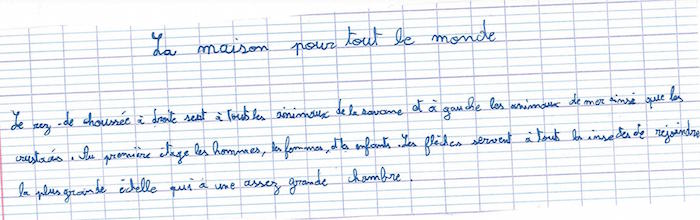 La maison pour tout le monde
Le rez-de choussée à droite sert à touts les animaux de la savane et à gauche les animaux de mer ainsé que les
crustacés. Au première étage les hommes, les femmes, et les enfants. Les flèches servent à tout les insectes de rejoindre
la plus grande échelle qui à une assez grande chambre.